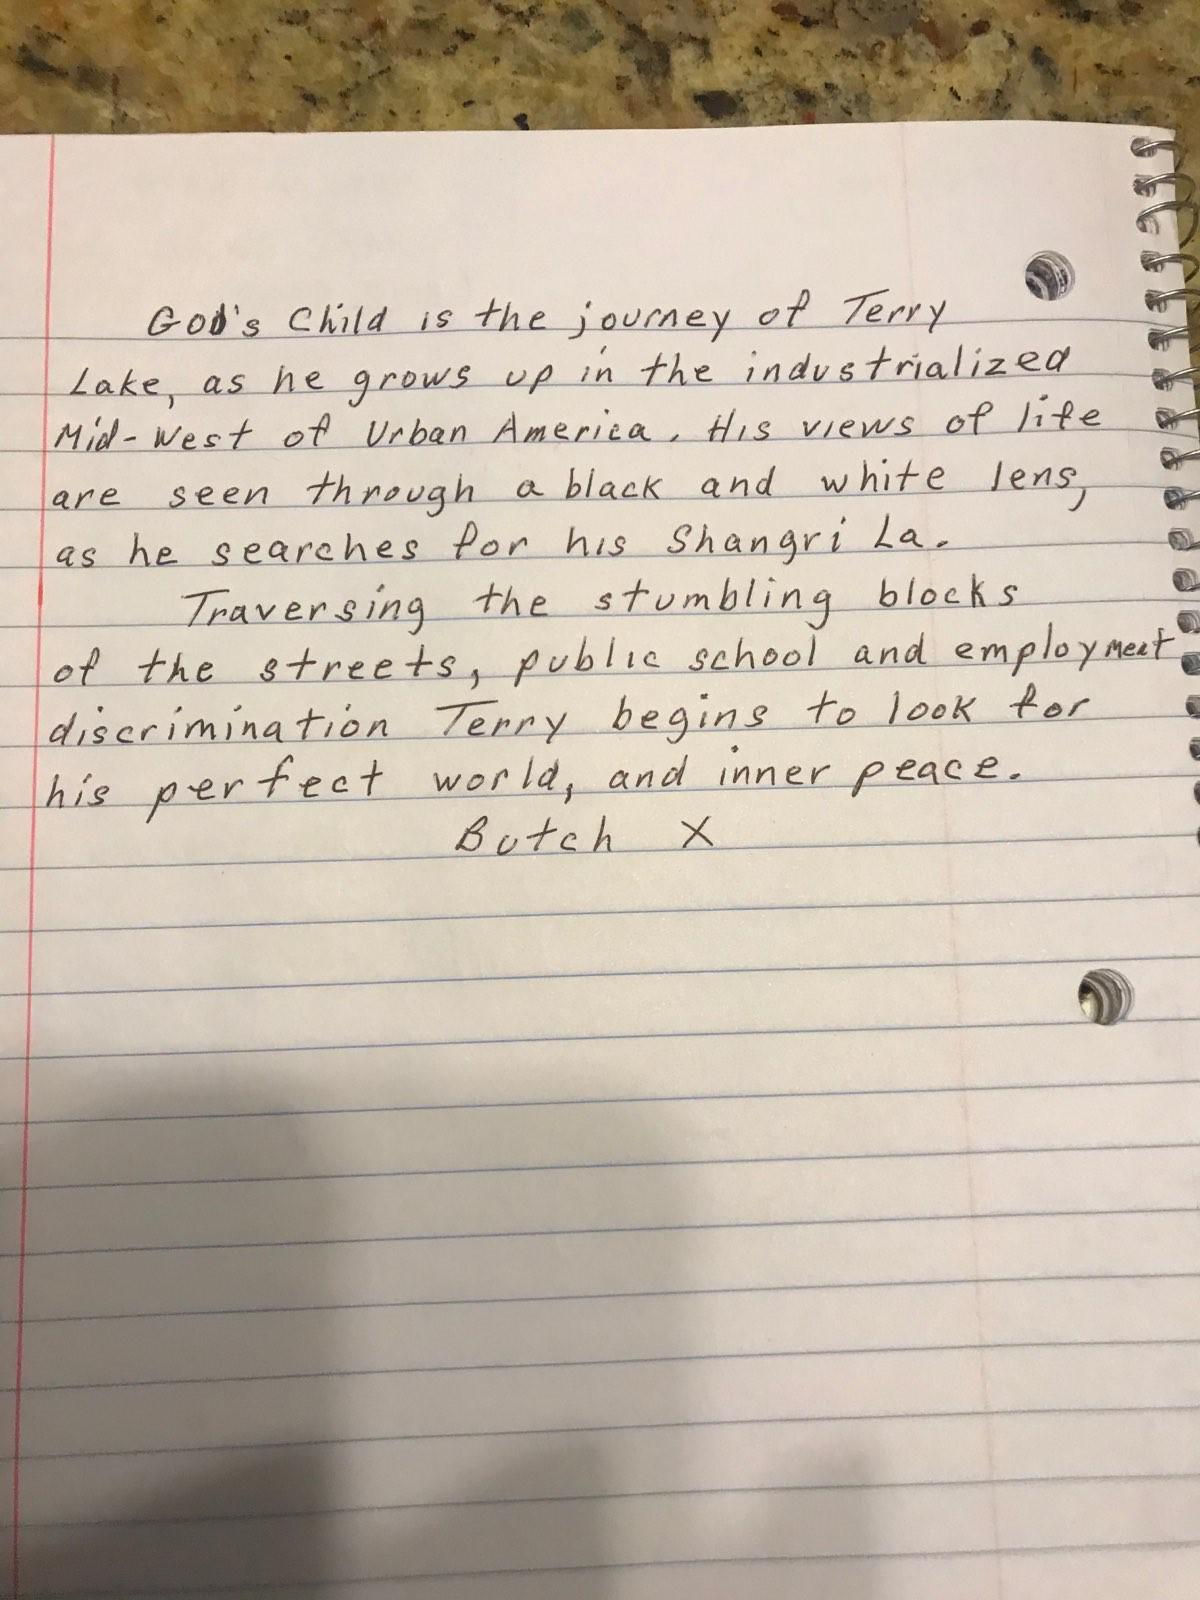 God's Child is the journey of Terry
Lake, as he grows up in the industrialized
Mid-West of Urban America. His views of life
are seen through a black and white lens,
as he searches for his Shangri La.
Traversing the stumbling blocks
of the streets, public school and employment
discrimination Terry begins to look for
his perfect world, and inner peace.
Butch X